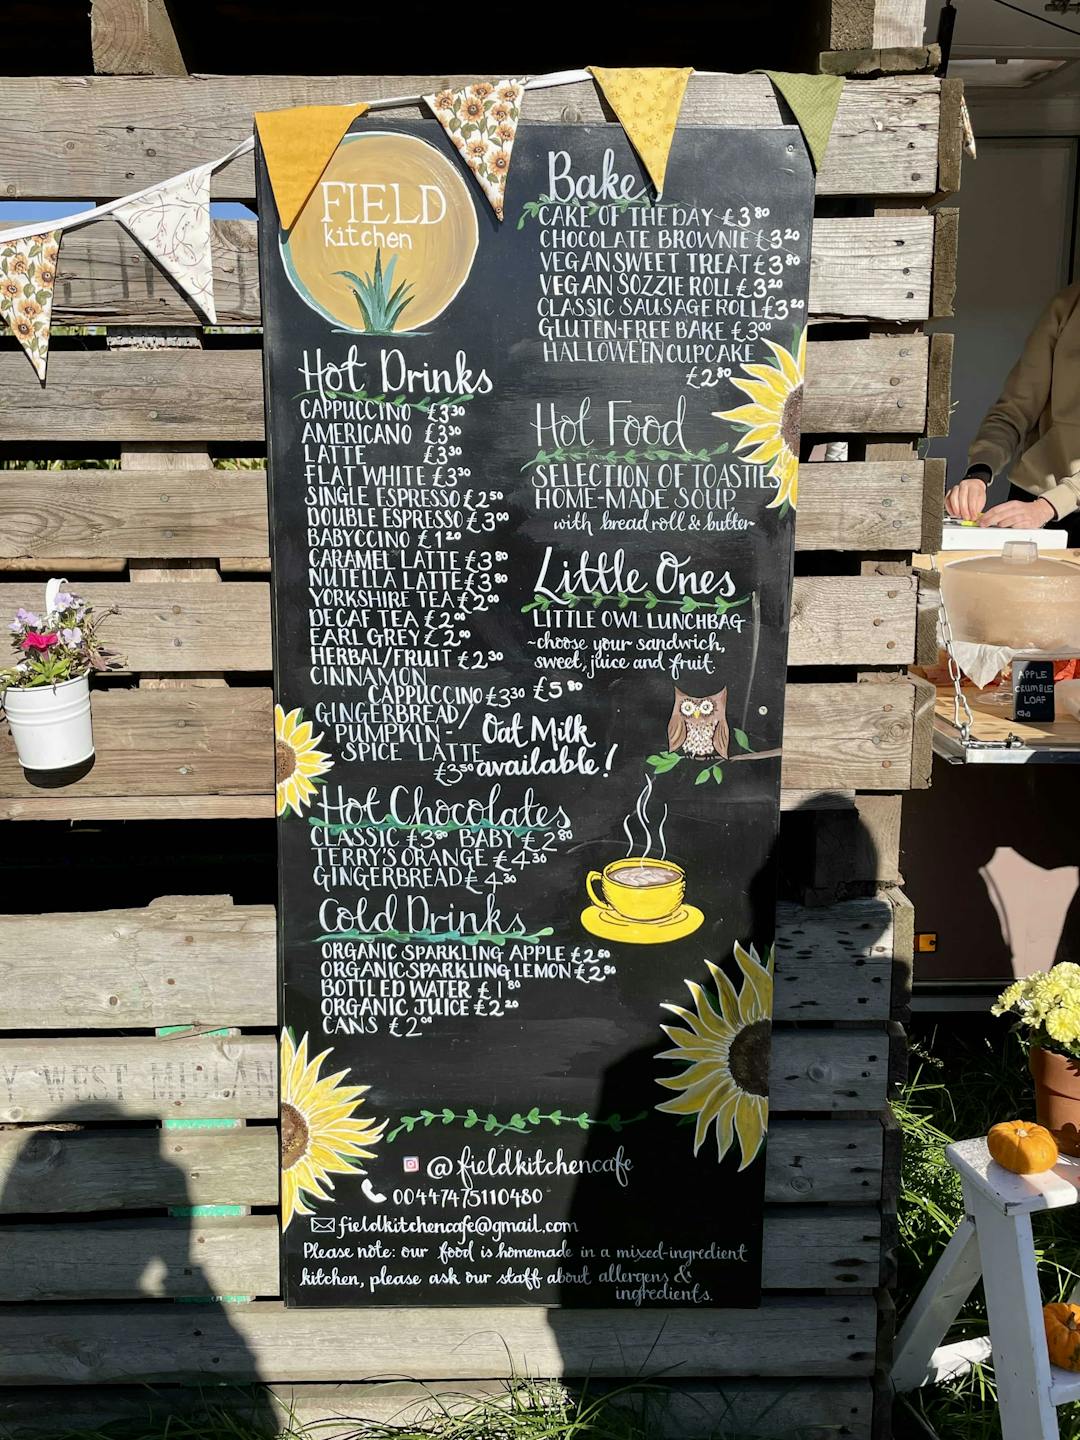 FIELD
kitchen
Hot Drinks
CAPPUCCINO £3 30
AMERICANO £3 30
LATTE £3 30
FLAT WHITE £3 30
SINGLE ESPRESSO £2 50
DOUBLE ESPRESSO £3 00
BABYCCINO £1 20
CARAMEL LATTE £3 80
NUTELLA LATTE £3 80
YORKSHIRE TEA £2 00
DECAF TEA £2 00
EARL GREY £2 00
HERBAL/FRUIT £2 30
CINNAMON
CAPPUCCINO £3 30
GINGERBREAD/
PUMPKIN-
SPICE LATTE
£3 50
Oat Milk
available!
Hot Chocolates
CLASSIC £3 80 BABY £2 80
TERRY'S ORANGE £4 30
GINGERBREAD £4 30
Cold Drinks
ORGANIC SPARKLING APPLE £2 50
ORGANIC SPARKLING LEMON £2 50
BOTTLED WATER £1 80
ORGANIC JUICE £2 20
CANS £2 00
Bake
CAKE OF THE DAY £3 80
CHOCOLATE BROWNIE £3 20
VEGAN SWEET TREAT £3 80
VEGAN SOZZIE ROLL £3 20
CLASSIC SAUSAGE ROLL £3 20
GLUTEN-FREE BAKE £3 00
HALLOWEEN CUPCAKE
£2 80
Hot Food
SELECTION OF TOASTIES
HOME-MADE SOUP,
with bread roll & butter
Little Ones
LITTLE OWL LUNCHBAG
~choose your sandwich,
sweet, juice and fruit.
£5 80
@fieldkitchencafe
00447475110480
fieldkitchencafe@gmail.com
Please note: our food is homemade in a mixed-ingredient
kitchen, please ask our staff about allergens &
ingredients.
APPLE
CRUMBLE
LOAF
Y WEST MIDLAN